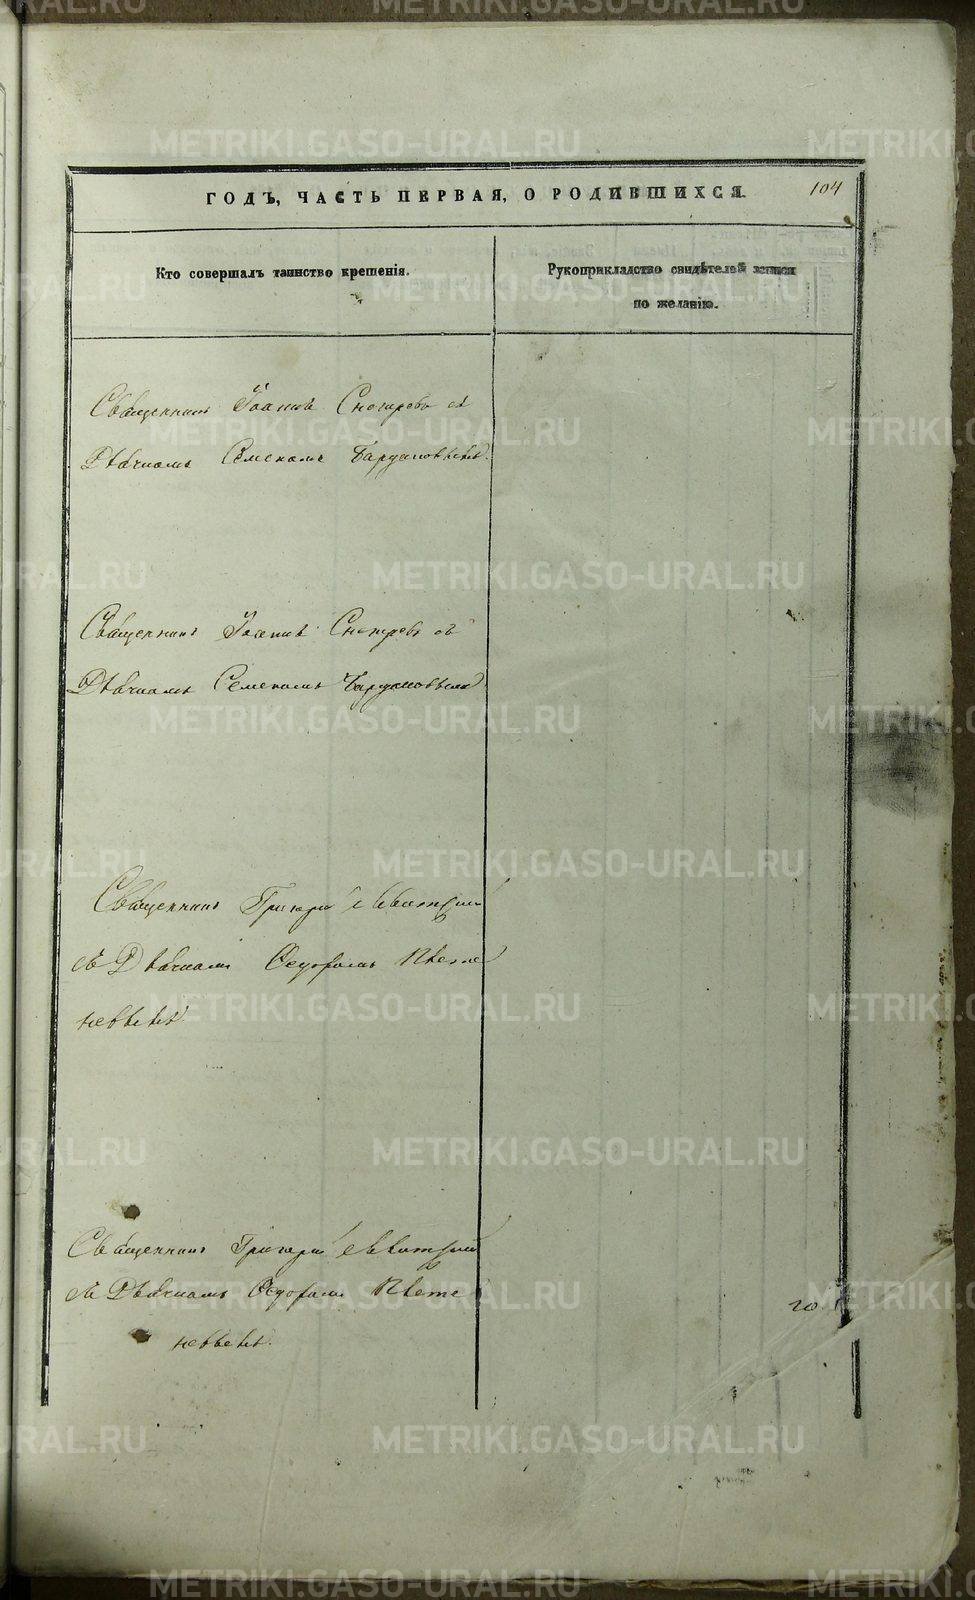 ГОДЪ, ЧАСТЬ ПЕРВАЯ, О РОДИВШИХСЯ.
104
Кто совершалъ таинство крещенія.
Рукоприкладство свидѣтелей записи
по желанію.
Священникъ Іоаннъ Снегиревъ съ
Дьячкомъ Семеномъ
Священникъ Іоаннъ Снегиревъ съ
Дьячкомъ Семеномъ
Священникъ Григорій
съ Дьячкомъ Ѳедоромъ Плете
невымъ.
Священникъ Григорій
съ Дьячкомъ Ѳедоромъ Плете
невымъ.
METRIKI.GASO-URAL.RU